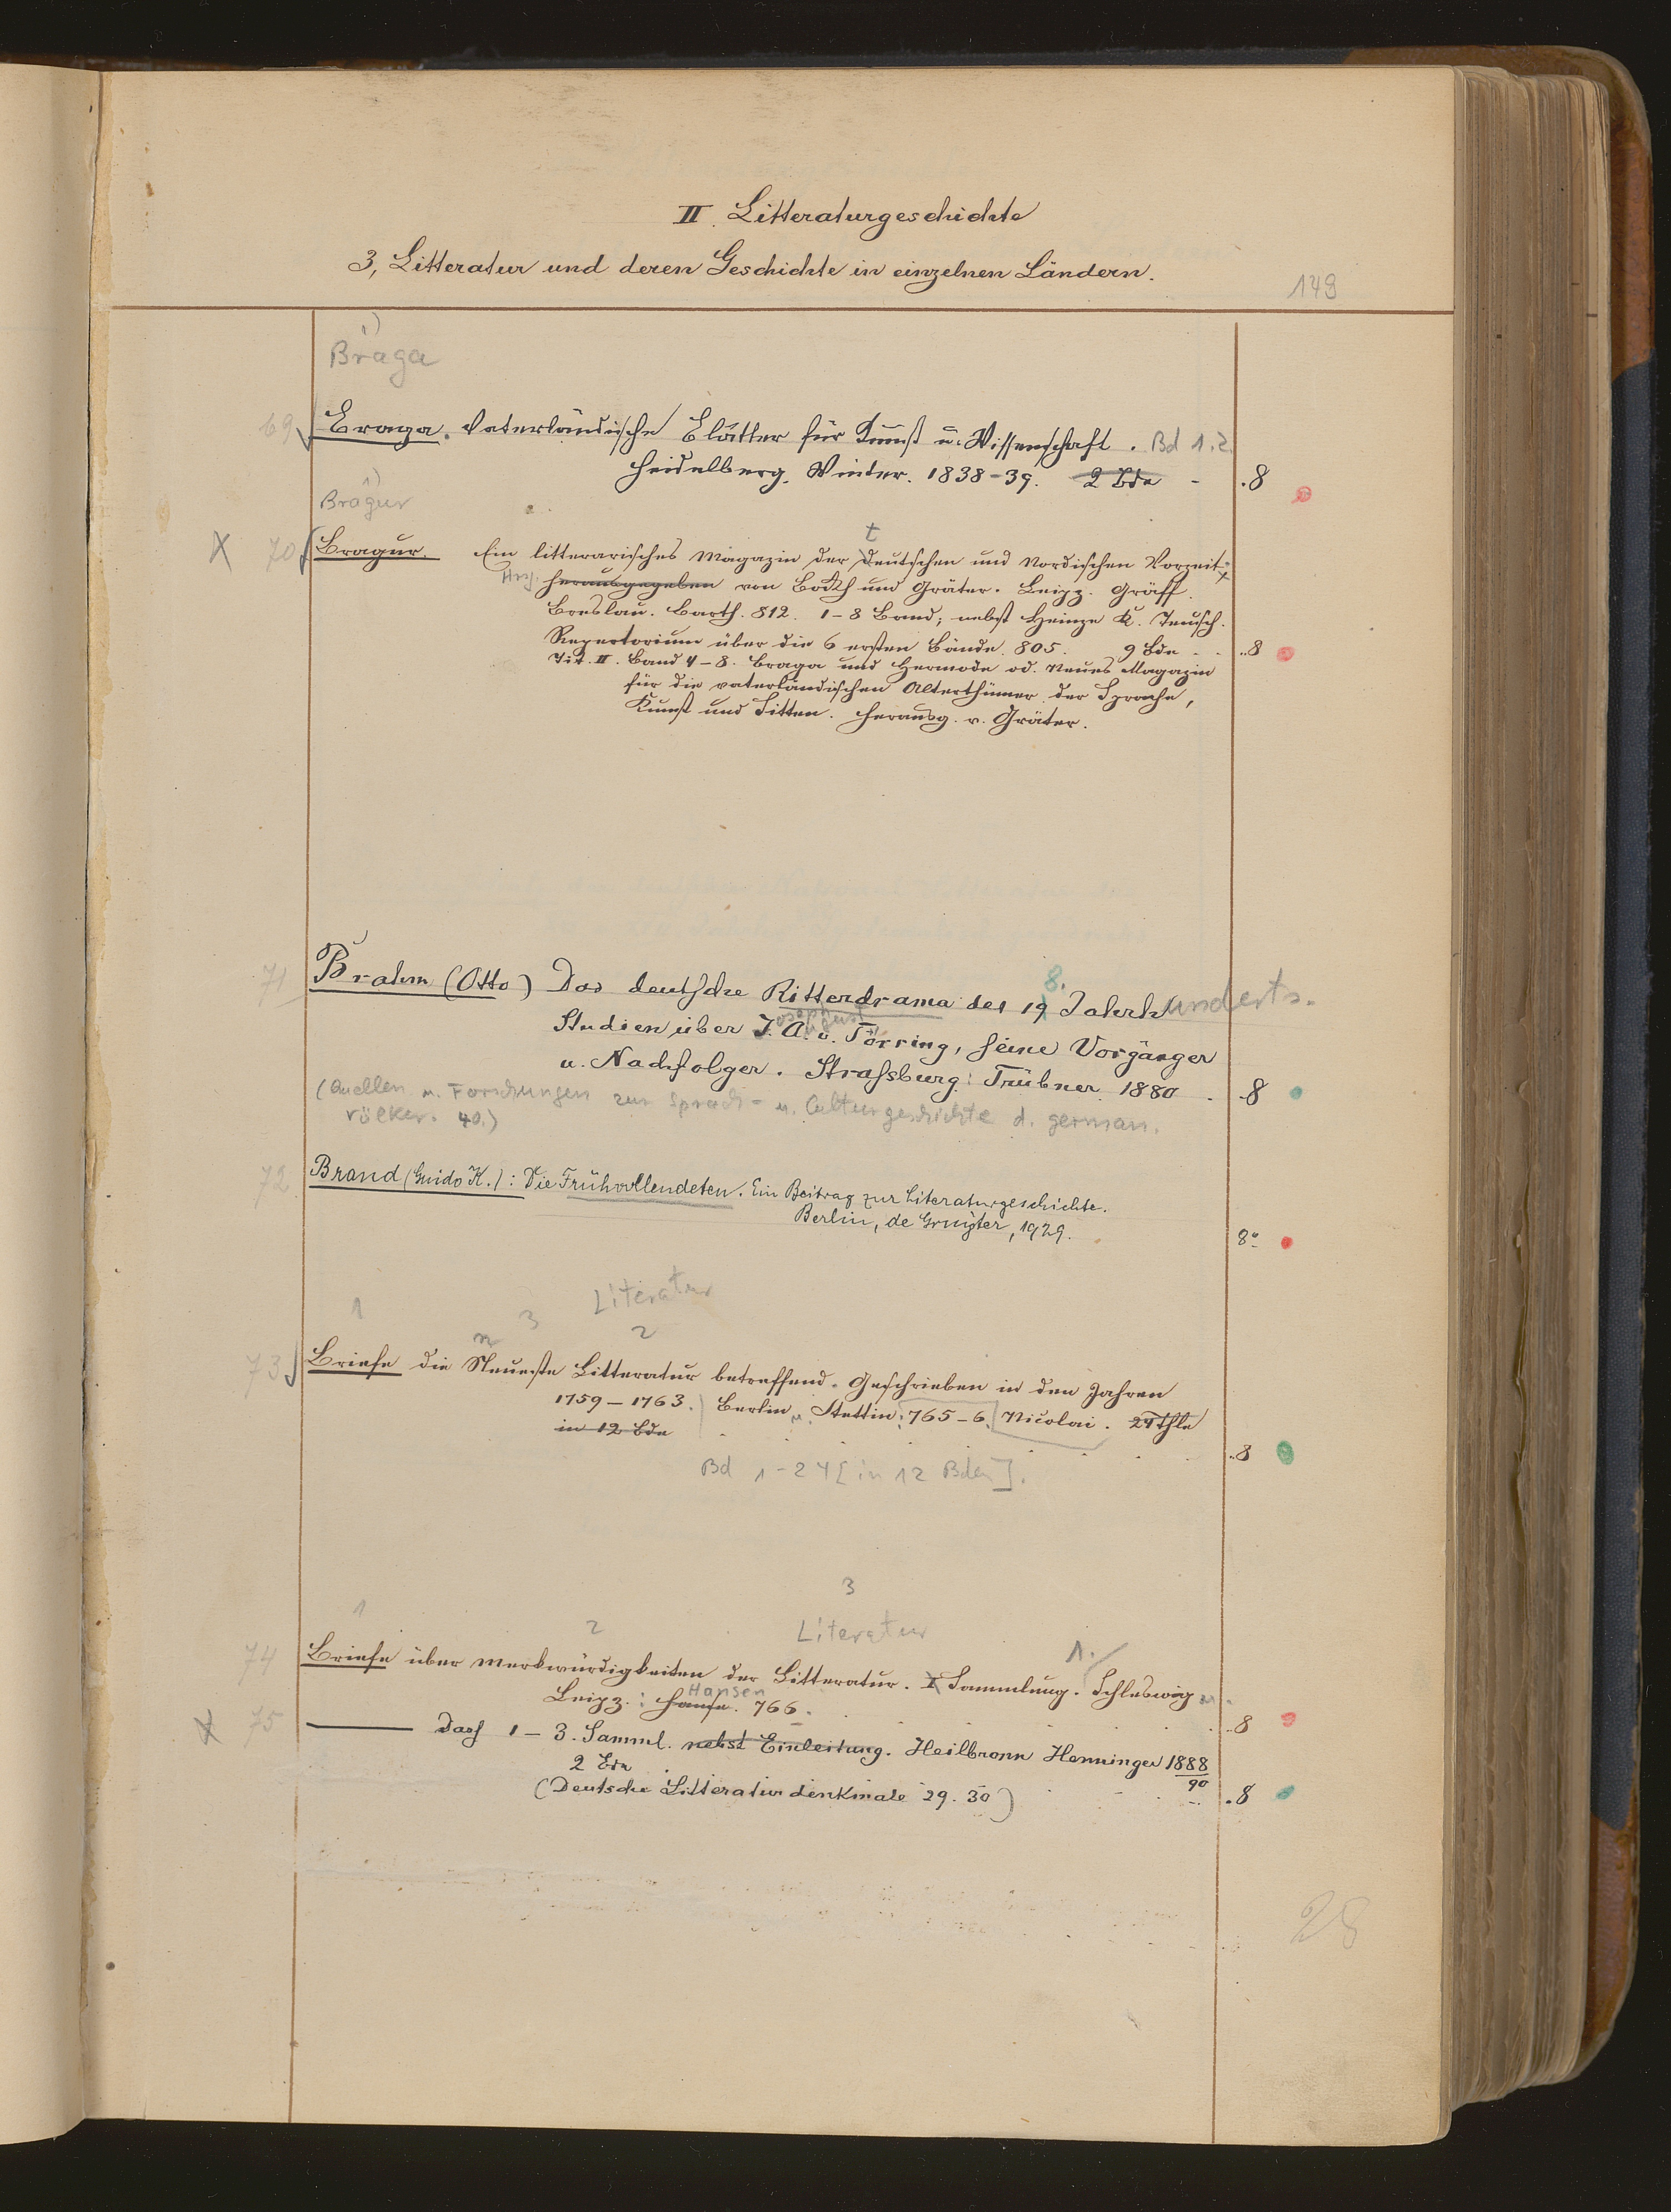 II. Litteraturgeschichte
3, Litteratur und deren Geschichte in einzelnen Ländern.
149
1)
Braga
69 Braga. Vaterländische Blätter für Kunst u. Wissenschaft. Bd 1.2.
Heidelberg. Winter. 1838-39. 2 Bde - .8
Bragur
t
70 Bragur. Ein litterarisches Magazin der deutschen und Nordischen Vorzeit.
Hrsg. herausgegeben von Böckh und Gräter. Leipz. Gräff.
Breslau. Barth. 812. 1-8 Band; nebst Heinze K. Teutsch.
Repertorium über die 6 ersten Bände. 805. 9 Bde - . ..8
Tit. II. Band 4-8. Braga und Hermode od. Neues Magazin
für die vaterländischen Alterthümer der Sprache,
Kunst und Sitten. Herausg. v. Gräter.
8.
71 Brahm (Otto) Das deutsche Ritterdrama des 19 Jahrhunderts.
oseph ugust
Studien über J. A. v. Törring, seine Vorgänger
u. Nachfolger. Strassburg: Trübner 1880 . .8
(Quellen u. Forschungen zur Sprach- u. Culturgeschichte d. german.
völker. 40.)
72. Brand (Guido K.): Die Frühvollendeten. Ein Beitrag zur Literaturgeschichte.
Berlin, de Gruyter, 1929.
8°
1 3 Literatur
n 2
73 Briefe die Neueste Litteratur betreffend. Geschrieben in den Jahren
1759-1763. Berlin u. Stettin: 765-6. Nicolai. 24 Thle
in 12 Bde
.8
Bd 1-24 [in 12 Bden].
3
1 2 Literatur 1.
74 Briefe über Merkwürdigkeiten der Litteratur. I Sammlung. Schleswig u.
Hansen
Leipz.: Hanse. 766. .8
75 —— Dass 1-3. Samml. nebst Einleitung. Heilbronn Henninger 1888
90
2 Bde
(Deutsche Litteraturdenkmale 29. 30) .8
28